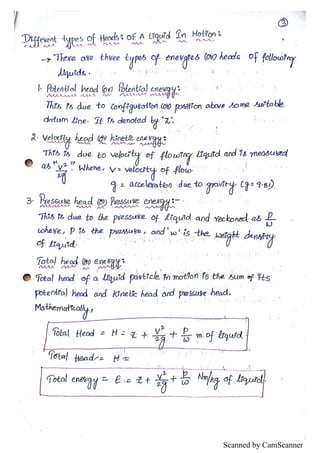 ③
Different types of Heads: of A Liquid In Motion:
→ There are three types of energies (or) heads of following
liquids.
1. Potential head (or) Potential energy:
This is due to Configuration (or) position above some suitable
datum line. It is denoted by 'z'.
2. Velocity head (or) kinetic energy:
This is due to velocity of flowing liquid and is measured
as "v²/2g". Where, v = velocity of flow
g = acceleration due to gravity (g = 9.81)
3. Pressure head (or) Pressure energy:-
This is due to the pressure of liquid and reckoned as P/w
where, P is the pressure, and 'w' is the weight density
of liquid.
Total head (or) energy:
Total head of a liquid particle in motion is the sum of its
potential head and kinetic head and pressure head.
Mathematically,
Total Head = H = z + v²/2g + P/w m of liquid
Total Head = H =
Total energy = E = z + v²/2g + P/w Nm/kg of liquid
Scanned by CamScanner